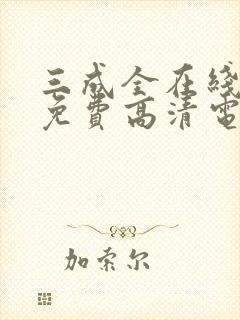 三成全在线
免费高清电
加索尔